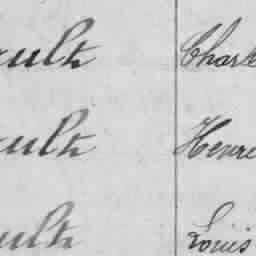 ault Charle
ault Henre
ault Louis